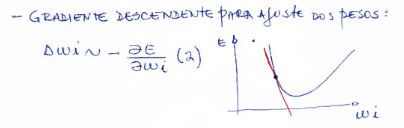 - GRADIENTE DESCENDENTE PARA AJUSTE DOS PESOS:
Δwi ~ - ∂E/∂wi (2)
E
wi